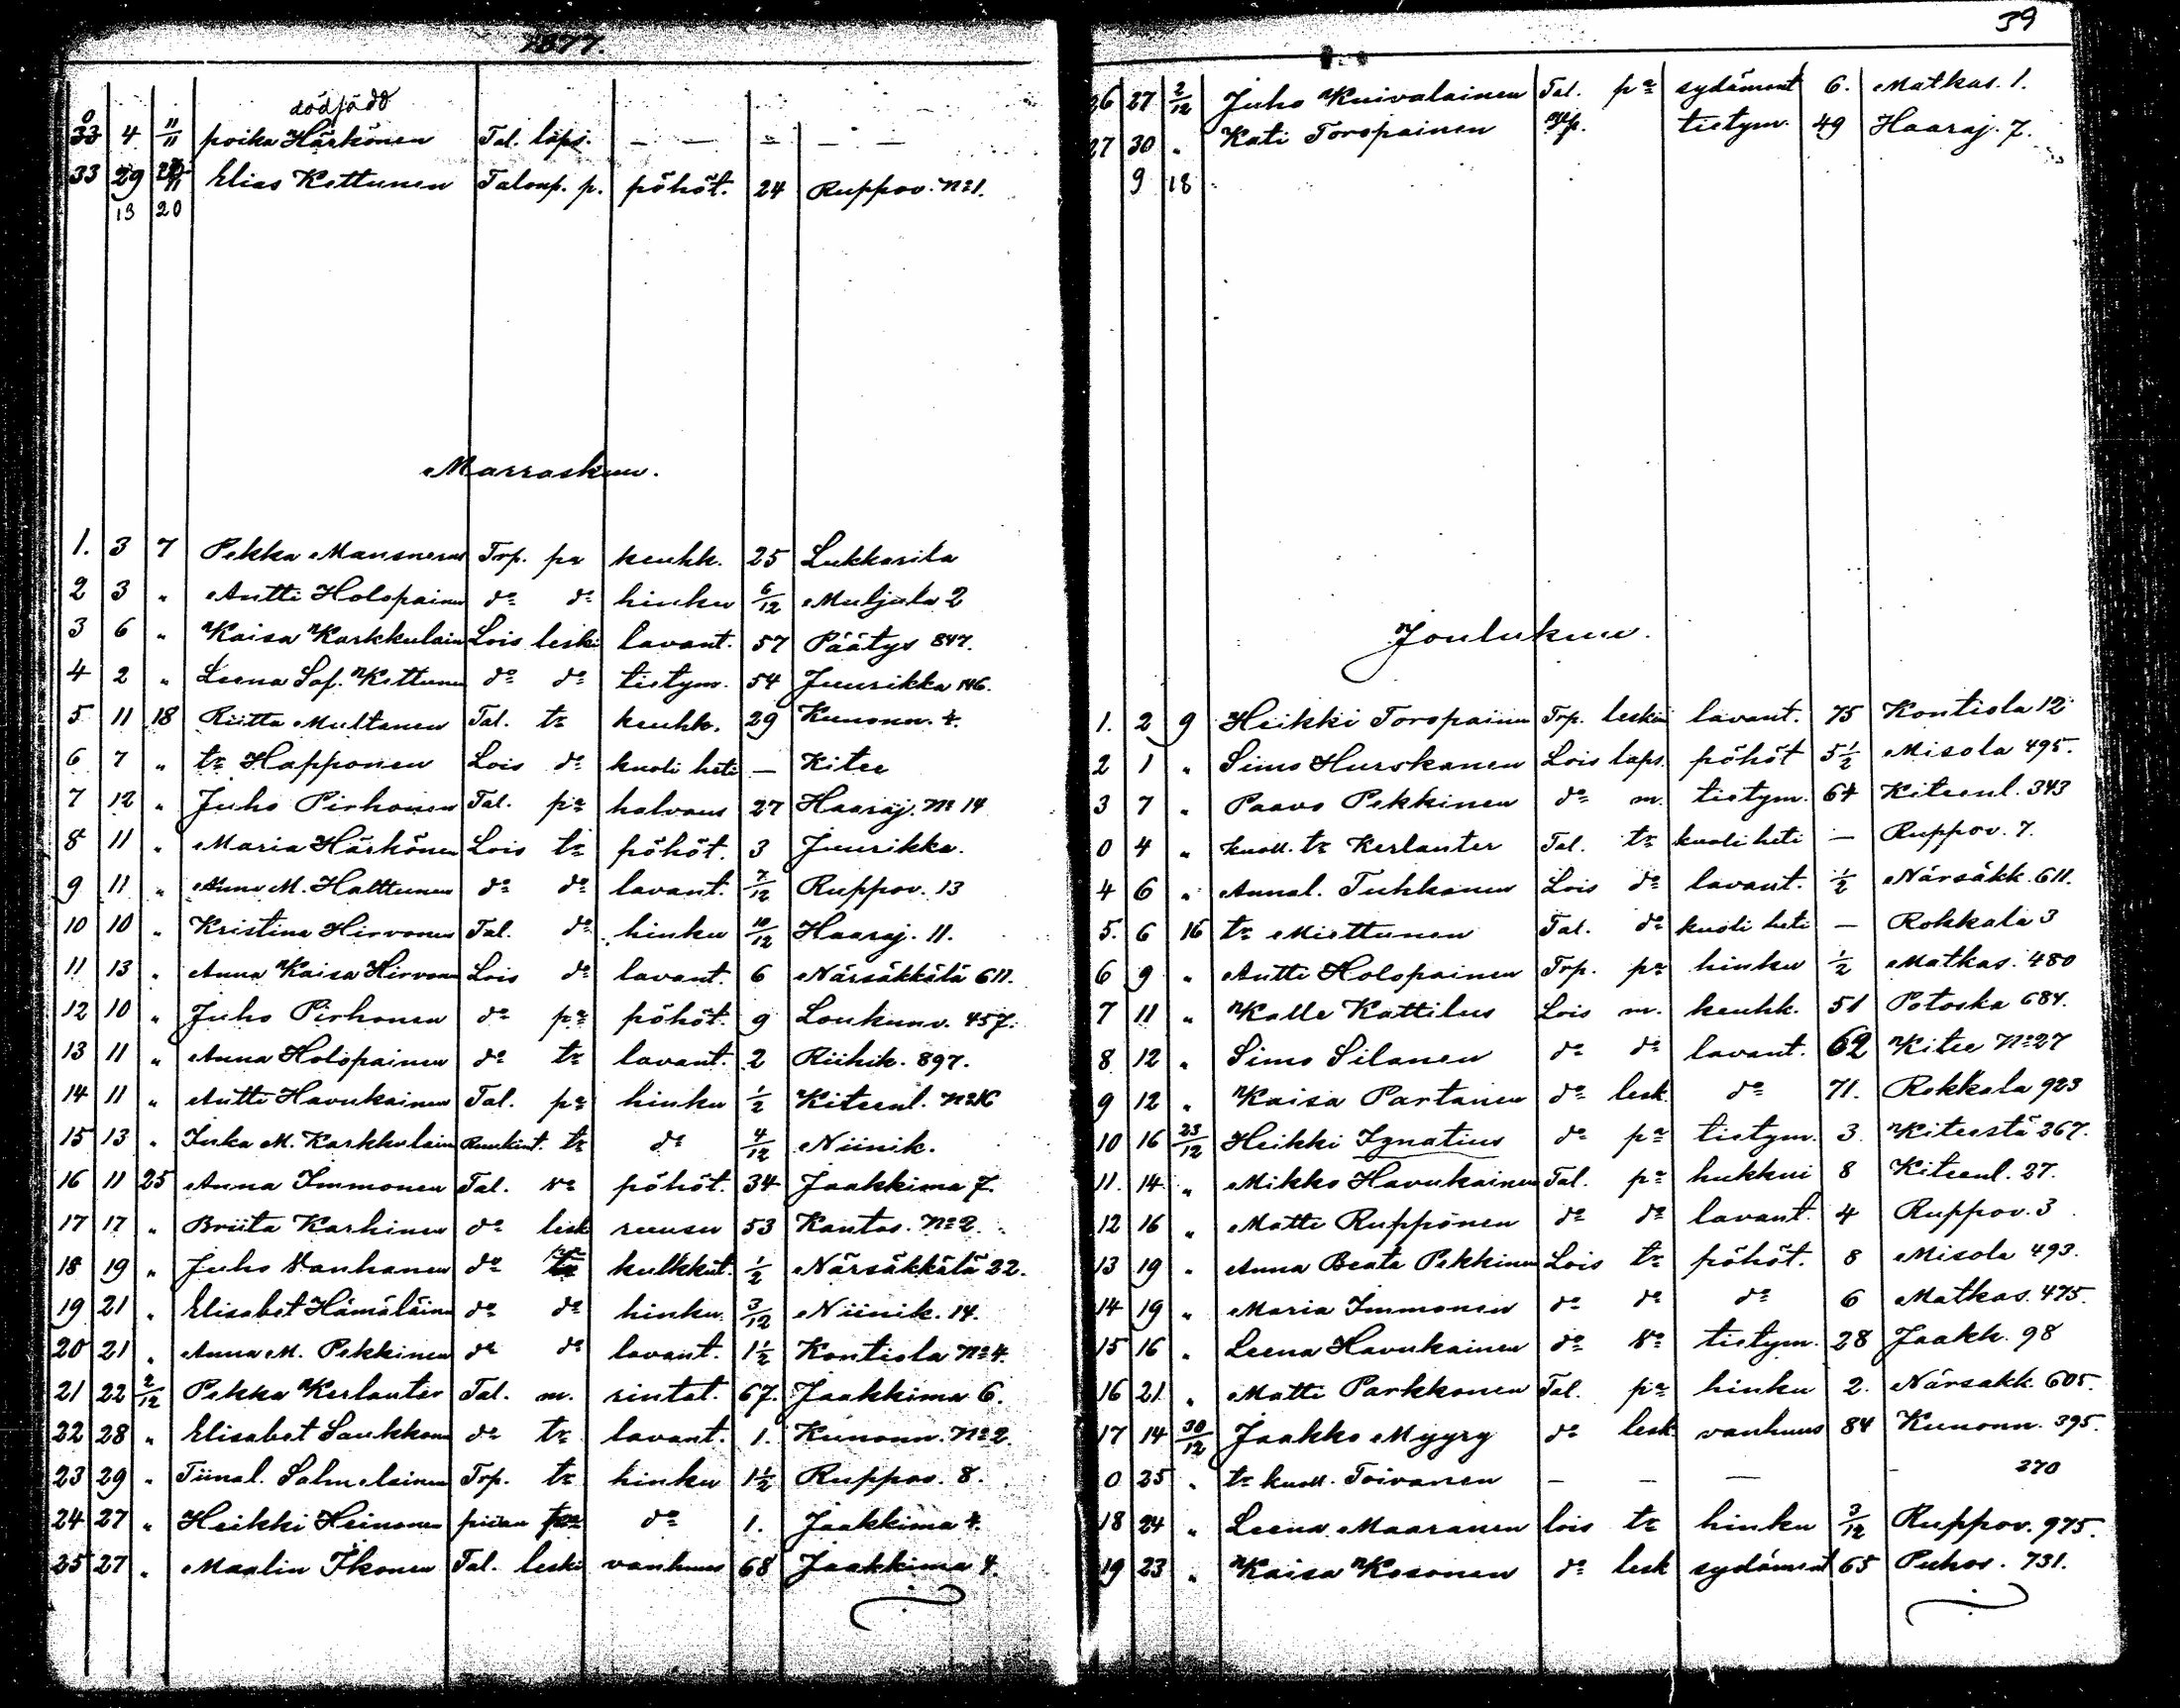 1877.
dödfödd
0 33 4 11/11 poika Härkönen Tal. laps. — — — — —
33 29 Elias Kettunen Talonp. p. pöhöt. 24 Ruppov. No 1.
13 20
Marraskuu.
1. 3 7 Pekka Mausnerus Trp. pa keuhk. 25 Lukkarila
2 3 " Antti Holopainen do do hinku 6/12 Muljula 2
3 6 " Kaisa Karkkulain Lois leski lavant. 57 Päätys 847.
4 2 " Leena Sof. Kettunen do do tietym. 54 Juurikka 146.
5 11 18 Riitta Multanen Tal. tr keuhk. 29 Kunonn. 4.
6 7 " tr Happonen Lois do kuoli heti — Kitee
7 12 " Juho Pirhonen Tal. pa halvaus 27 Haaraj. No 14
8 11 " Maria Härkönen Lois tr pöhöt. 3 Juurikka.
9 11 " Anna M. Halttunen do do lavant. 7/12 Ruppov. 13
10 10 " Kristina Hirvonen Tal. do hinku 10/12 Haaraj. 11.
11 13 " Anna Kaisa Hirvonen Lois do lavant. 6 Närsäkkälä 611.
12 10 " Juho Pirhonen do pa pöhöt. 9 Loukunv. 457.
13 11 " Anna Holopainen do tr lavant. 2 Riihik. 897.
14 11 " Antti Havukainen Tal. pa hinku 1/2 Kiteenl. No 16
15 13 " Inka M. Karkkulain tr do 4/12 Niinik.
16 11 25 Anna Immonen Tal. va pöhöt. 34 Jaakkima 7.
17 17 " Briita Karhinen do lesk ruusu 53 Kantos. No 2.
18 19 " Juho Vanhanen do kulkkut. 1/2 Närsäkkälä 22.
19 21 " Elisabet Hämäläinen do do hinku 3/12 Niinik. 14.
20 21 " Anna M. Pekkinen do do lavant. 1 1/2 Kontiola No 4.
21 22 2/12 Pekka Kerlanter Tal. m. rintat. 67. Jaakkima 6.
22 28 " Elisabet Saukkonen do tr lavant. 1. Kunonn. No 2.
23 29 " Tiinal. Salmelainen Trp. tr hinku 1 1/2 Ruppov. 8.
24 27 " Heikki Heinonen piian do 1. Jaakkima 4.
25 27 " Maalin Ikonen Tal. leski vanhuus 68 Jaakkima 4.
39
26 27 2/12 Juho Kuivalainen Tal. pa sydäment 6. Matkas. 1.
27 30 " Kati Toropainen tietym. 49 Haaraj. 7.
9 18
Joulukuu.
1. 2 9 Heikki Toropainen Trp. leski lavant. 75 Kontiola 12
2 1 " Simo Hurskanen Lois laps. pöhöt 5 1/2 Misola 495.
3 7 " Paavo Pekkinen do m. tietym. 64 Kiteenl. 343
0 4 " kuoll. tr Kerlanter Tal. tr kuoli heti — Ruppov. 7.
4 6 " Annal. Tuhkanen Lois do lavant. 1/2 Närsäkk. 611.
5. 6 16 tr Miettunen Tal. do kuoli heti — Rokkala 3
6 9 " Antti Holopainen Trp. pa hinku 1/2 Matkas. 480
7 11 " Kalle Kattilus Lois m. keuhk. 51 Potoska 684.
8 12 " Simo Silanen do do lavant. 62 Kitee No 27
9 12 " Kaisa Partanen do lesk do 71. Rokkala 923
10 16 23/12 Heikki Ignatius do pa tietym. 3 Kiteestä 267.
11. 14 " Mikko Havukainen Tal. pa hukkui 8 Kiteenl. 27.
12 16 " Matti Ruppönen do do lavant. 4 Ruppov. 3
13 19 " Anna Beata Pekkinen Lois tr pöhöt. 8 Misola 493.
14 19 " Maria Immonen do do do 6 Matkas. 475.
15 16 " Leena Havukainen do va tietym. 28 Jaakk. 98
16 21. " Matti Parkkonen Tal. pa hinku 2. Närsäkk. 605.
17 14 30/12 Jaakko Myyry do lesk vanhuus 84 Kunonn. 395.
0 25 " tr kuoll. Toivanen — — — — 370
18 24 " Leena Maaranen lois tr hinku 3/12 Ruppov. 975.
19 23 " Kaisa Kosonen do lesk sydäment 65 Puhos. 731.